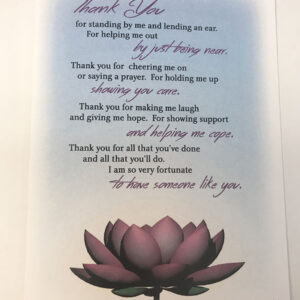 Thank You
for standing by me and lending an ear.
For helping me out
by just being near.
Thank you for cheering me on
or saying a prayer. For holding me up
showing you care.
Thank you for making me laugh
and giving me hope. For showing support
and helping me cope.
Thank you for all that you've done
and all that you'll do.
I am so very fortunate
to have someone like you.